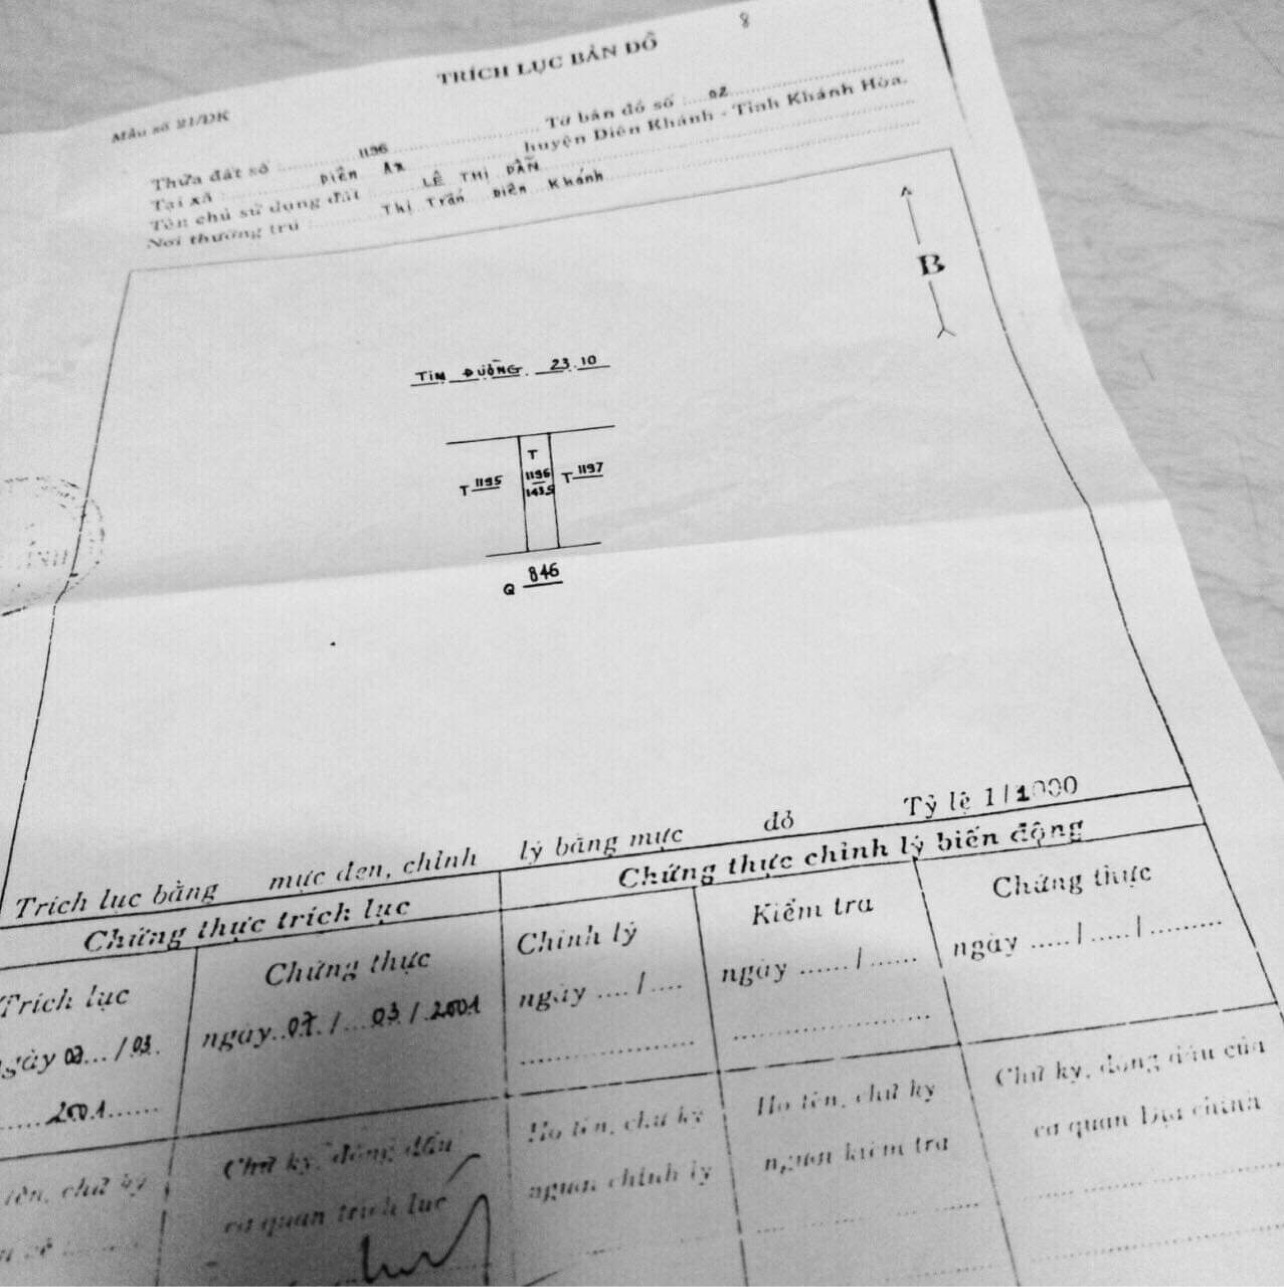 8
TRÍCH LỤC BẢN ĐỒ
Mẫu số 21/ĐK
Thửa đất số 1196 Tờ bản đồ số 02
Tại xã Diên An huyện Diên Khánh - Tỉnh Khánh Hòa.
Tên chủ sử dụng đất LÊ THỊ DẦN
Nơi thường trú Thị Trấn Diên Khánh
B
TIM ĐƯỜNG 23.10
T
T 1195
1196
143,5
T 1197
846
Q
Trích lục bằng mực đen, chỉnh lý bằng mực đỏ Tỷ lệ 1/1000
Chứng thực trích lục
Chứng thực chỉnh lý biến động
Trích lục
Chứng thực
Chỉnh lý
Kiểm tra
Chứng thực
ngày 07.../03.
ngày..07./...03/.2001
ngày ..../....
ngày ....../......
ngày ...../...../.........
.....2001......
tên, chữ ký
Chữ ký, đóng dấu
cơ quan trích lục
Họ tên, chữ ký
người chỉnh lý
Họ tên, chữ ký
người kiểm tra
Chữ ký, đóng dấu của
cơ quan Địa chính